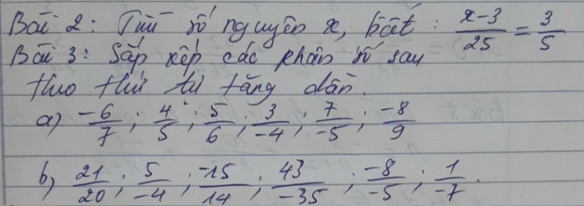 Bài 2: Tìm số nguyên x, biết: \frac{x-3}{25} = \frac{3}{5}
Bài 3: Sắp xếp các phân số sau
theo thứ tự tăng dần.
a) \frac{-6}{7}; \frac{4}{5}; \frac{5}{6}; \frac{3}{-4}; \frac{7}{-5}; \frac{-8}{9}
b) \frac{21}{20}; \frac{5}{-4}; \frac{-15}{14}; \frac{43}{-35}; \frac{-8}{-5}; \frac{1}{-7}.